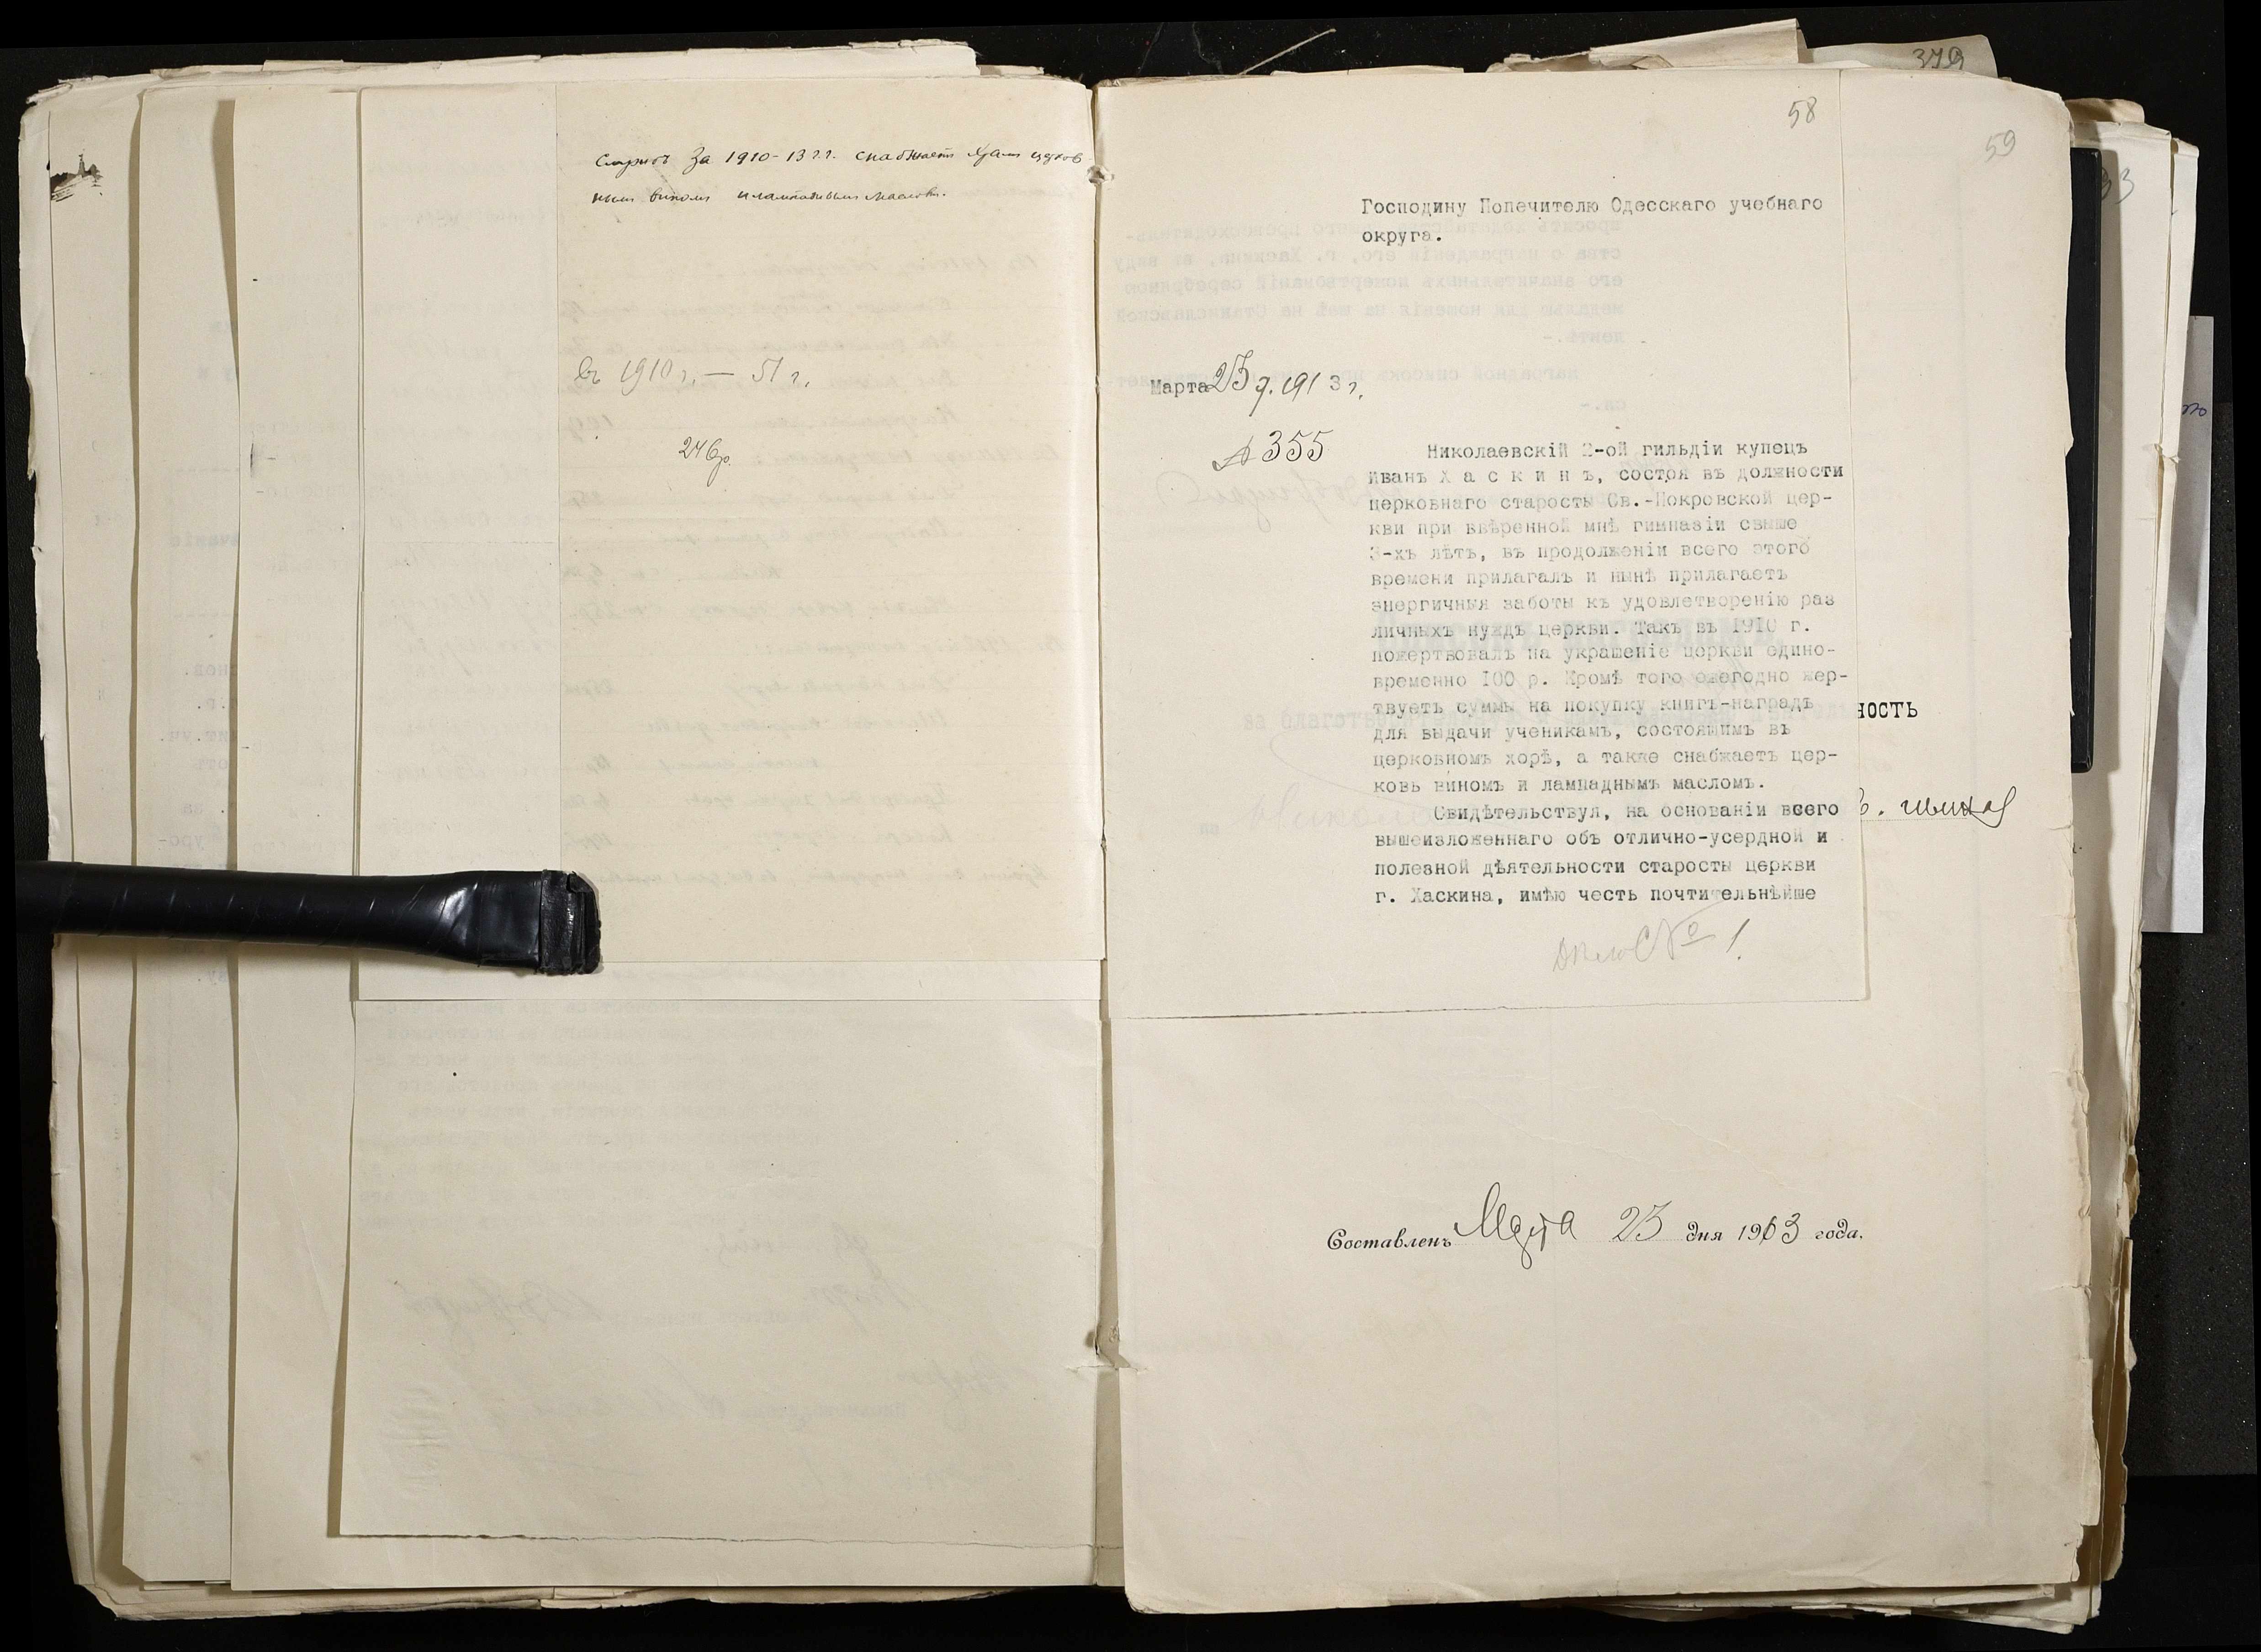 за 1910-13 г.г. снабжаетъ храмъ церков-
нымъ виномъ и лампаднымъ масломъ.
въ 1910 г. — 51 г.
246р.
379
58
59
33
Господину Попечителю Одесскаго учебнаго
округа.
Марта 23 д. 1913 г.
№ 355
Николаевскій 2-ой гильдіи купецъ
Иванъ Х а с к и н ъ, состоя въ должности
церковнаго старосты Св.-Покровской цер-
кви при ввѣренной мнѣ гимназіи свыше
3-хъ лѣтъ, въ продолженіи всего этого
времени прилагалъ и нынѣ прилагаетъ
энергичныя заботы къ удовлетворенію раз
личныхъ нуждъ церкви. Такъ въ 1910 г.
пожертвовалъ на украшеніе церкви едино-
временно I00 р. Кромѣ того ежегодно жер-
твуетъ суммы на покупку книгъ-наградъ
для выдачи ученикамъ, состоящимъ въ
церковномъ хорѣ, а также снабжаетъ цер-
ковь виномъ и лампаднымъ масломъ.
Свидѣтельствуя, на основаніи всего
вышеизложеннаго объ отлично-усердной и
полезной дѣятельности старосты церкви
г. Хаскина, имѣю честь почтительнѣйше
дѣло № 1
ность
Составленъ Марта 23 дня 1913 года.